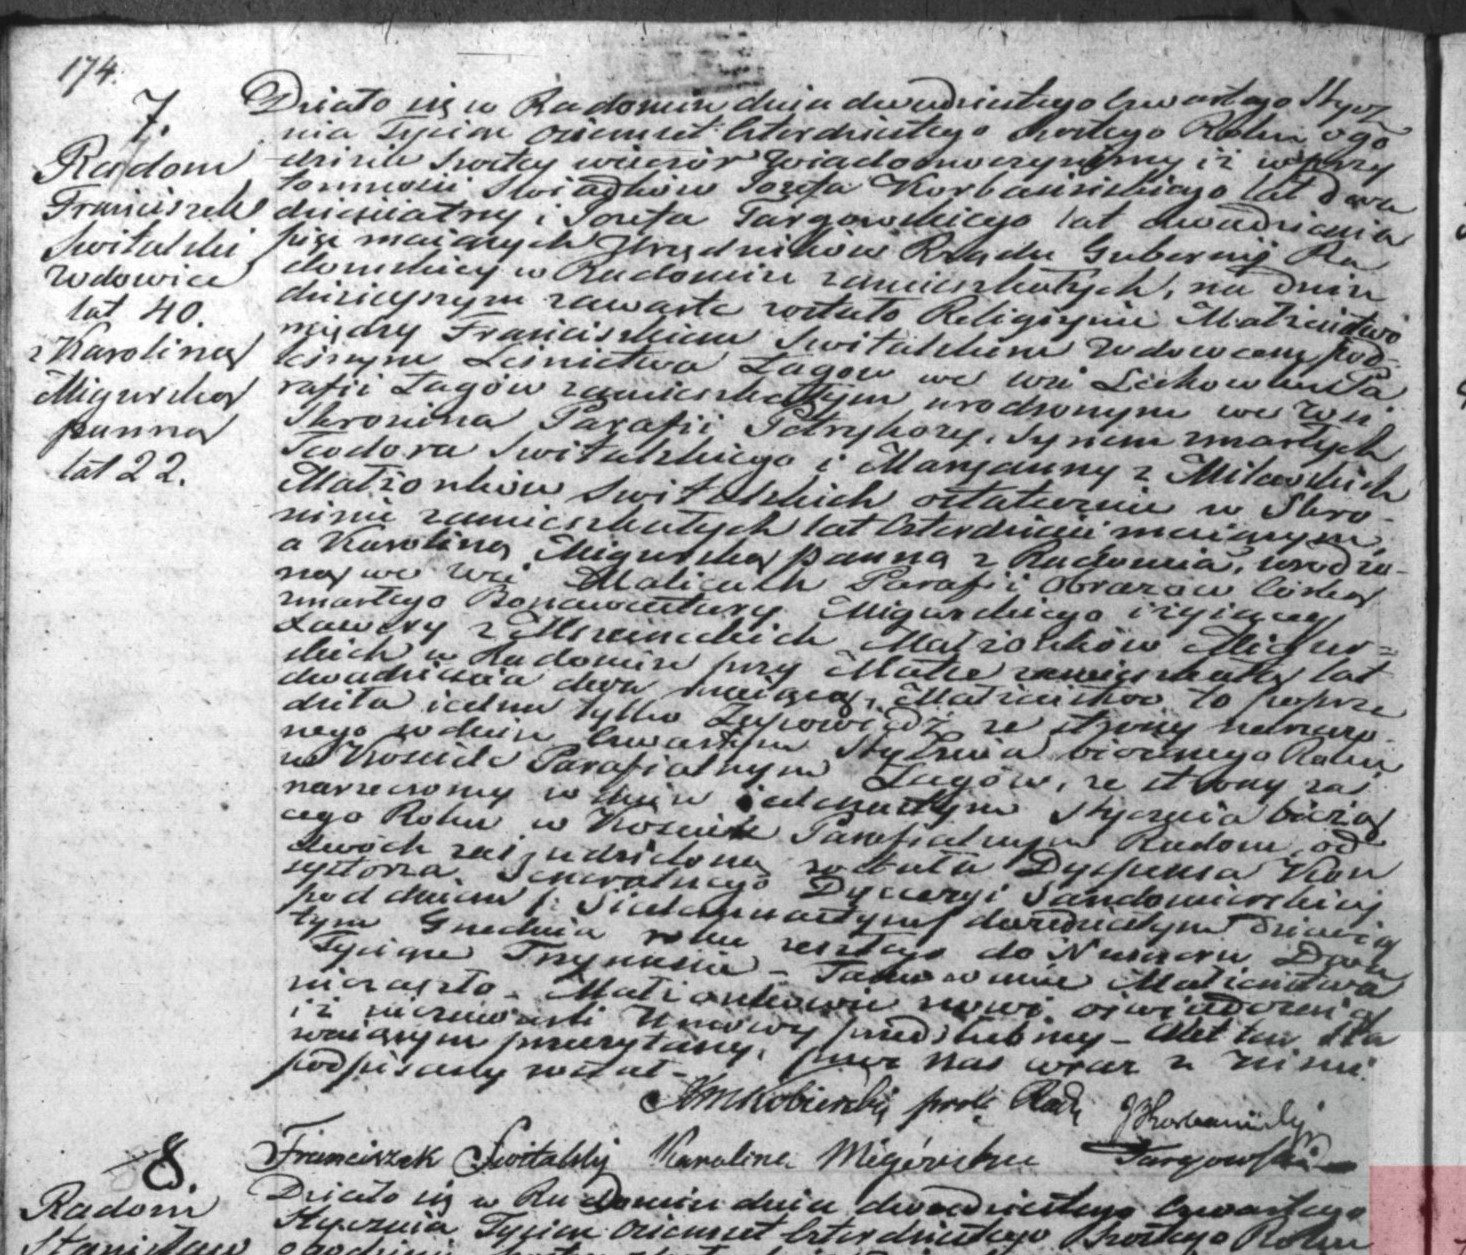 174.
7.
Radom
Franciszek
Switalski
Wdowiec
lat 40.
z Karoliną
Migurską
panną
lat 22.
Działo się w Radomiu dnia dwudziestego czwartego Stycz
nia Tysiąc ośmset czterdziestego szóstego Roku o go
dzinie szóstey wieczór Wiadomo czynimy iż w przy
tomności Świadków Józefa Korbańskiego lat dwa
dzieścia trzy i Józefa Targowskiego lat dwadzieścia
pięć maiących Urzędników Rządu Gubernij Ra
domskiey w Radomiu zamieszkałych, na dniu
dzisieyszym zawarte zostało Religiyne Małżeństwo
między Franciszkiem Switalskim Wdowcem, pod-
leśnym Leśnictwa Łagow we wsi Pa
rafii Łagów zamieszkałym urodzonym we Wsi
Skronina Parafii Petrykozy, Synem zmarłych
Teodora Switalskiego i Maryanny z Milewskich
Małżonków Switalskich ostatecznie w Skro-
ninie zamieszkałych lat czterdzieści maiącym,
a Karoliną Migurską panną z Radomia, urodzo-
ną we Wsi Malicach Parafii Obrazów córką
zmarłego Bonawentury Migurskiego i żyiącey
Xawery z Małżonków Migur-
skich w Radomiu przy Matce zamieszkałą lat
dwadzieścia dwa maiącą, Małżeństwo to poprze
dziła iedna tylko Zapowiedź ze strony narzeczo-
nego w dniu czwartym Stycznia bieżącego Roku
w Kościele Parafialnym Łagów, ze strony zaś
narzeczoney w dniu iedenastym Stycznia bieżą
cego Roku w Kościele Parafialnym Radom, od
dwóch zaś udzieloną została Dyspensa Kon
systorza Jeneralnego Dyecezyi Sandomierskiey
pod dniem siedemnastym dwudziestym dziewią
tym Grudnia roku zeszłego do Numeru Dwa
Tysiące Trzynaście – Tamowanie Małżeństwa
nie zaszło – Małżonkowie nowi oświadczaią
iż nie zawarli Umowy przedślubney – Akt ten sta
waiącym przeczytany, przez Nas wraz z nimi
podpisany został –
J. Korbański
Franciszek Switalski Karolina Migórska Targowski
8.
Radom
Stanisław
Działo się w Radomiu dnia dwudziestego czwartego
Stycznia Tysiąc ośmset czterdziestego szóstego Roku
o godzinie